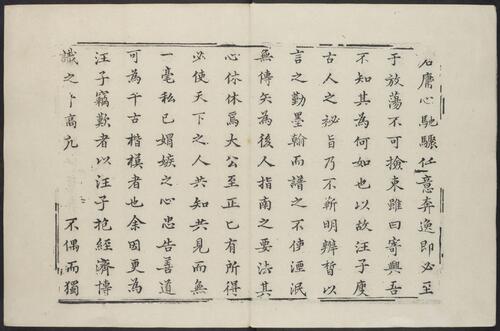 名賡心馳騾任意奔逸即必至
于放蕩不可撿束雖曰寄興吾
不知其為何如也以故汪子廋
古人之秘旨乃不靳明辯晳以
言之勤墨翰而譜之不使湮泯
無傳矢為後人指南之要法其
心休休焉大公至正已有所得
必使天下之人共知共見而無
一毫私已媢嫉之心忠告善道
可為千古楷模者也余因更為
汪子竊歎者以汪子抱經濟博
識之才高亢 不偶而獨